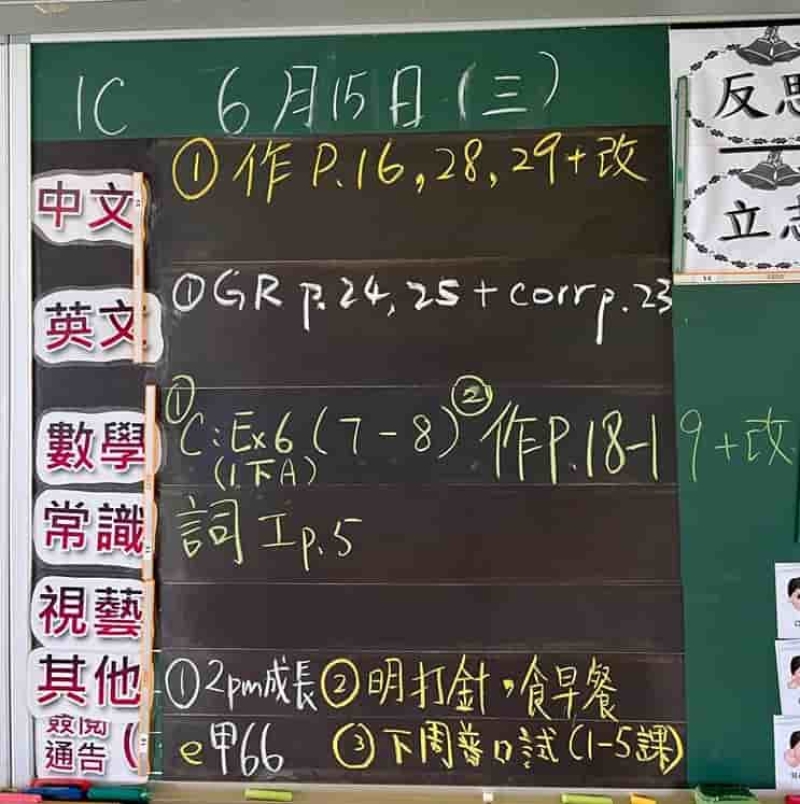 1C 6月15日(三)
中文 ①作P.16,28,29+改
英文 ①GR p.24,25+corr p.23
數學 ①C:Ex6(7-8) ②作P.18-19+改
(1下A)
常識 詞工p.5
視藝
其他 ①2pm成長 ②明打針,食早餐
簽閱
通告( e甲66 ③下周普口試(1-5課)
反思
立志